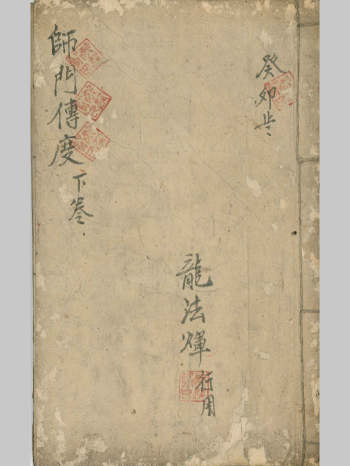 癸卯歲
師門傳度下卷
龍法輝行用